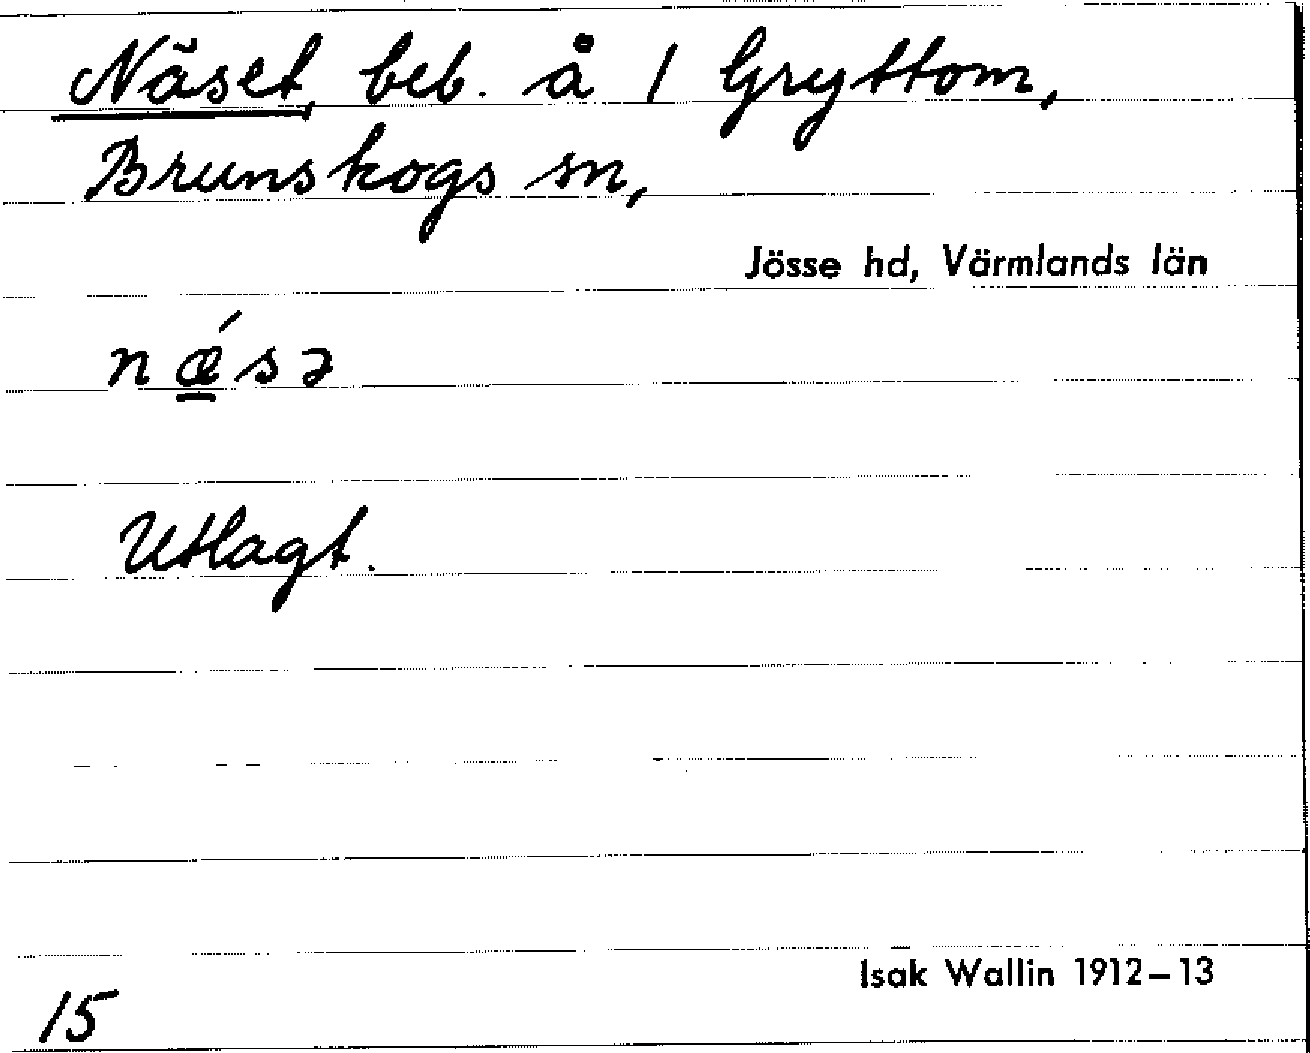 Näset, beb. å 1 Gryttom,
Brunskogs sn,
Jösse hd, Värmlands län
nǽ̱sə
Utlagt.
Isak Wallin 1912–13
15